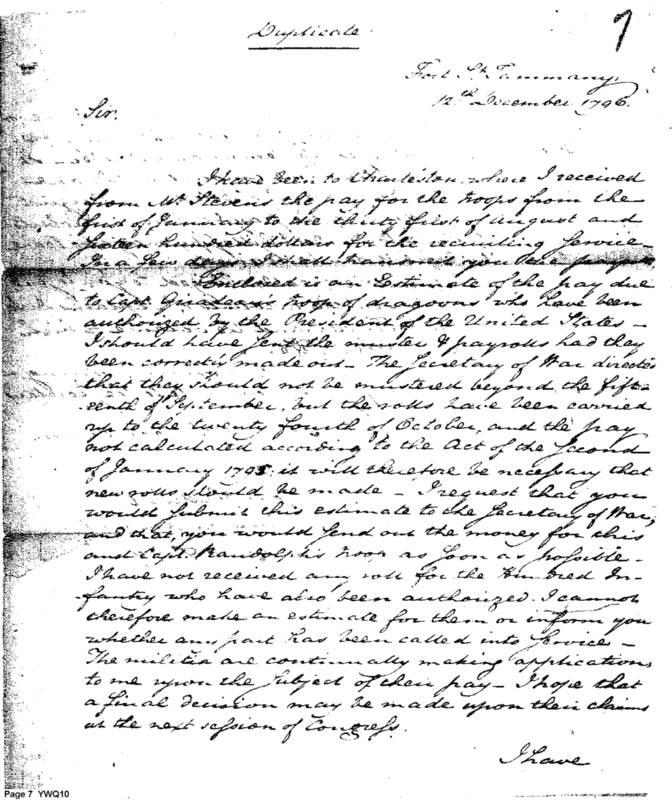 Duplicate
7
Fort St. Tammany,
12th December 1796.
Sir.
I have been to Charleston, where I received
from Mr. Stevens the pay for the troops from the
first of January to the thirty first of August and
sixteen hundred dollars for the recruiting service—
In a few days I shall transmit you the
Enclosed is an Estimate of the pay due
to Capt. troop of dragoons who have been
authorized by the President of the United States—
I should have sent the muster & payrolls had they
been correctly made out— The Secretary of War directed
that they should not be mustered beyond the fift-
eenth of September, but the rolls have been carried
up to the twenty fourth of October, and the pay
not calculated according to the Act of the second
of January 1795: it will therefore be necessary that
new rolls should be made— I request that you
would submit this estimate to the Secretary of War,
and that, you would send out the money for this
and Capt. Randolph's troop as soon as possible—
I have not received any roll for the Hundred In-
fantry who have also been authorized. I cannot
therefore make an estimate for them or inform you
whether any part has been called into service—
The militia are continually making applications
to me upon the subject of their pay— I hope that
a final decision may be made upon their claims
at the next session of Congress.
I have
Page 7 YWQ10